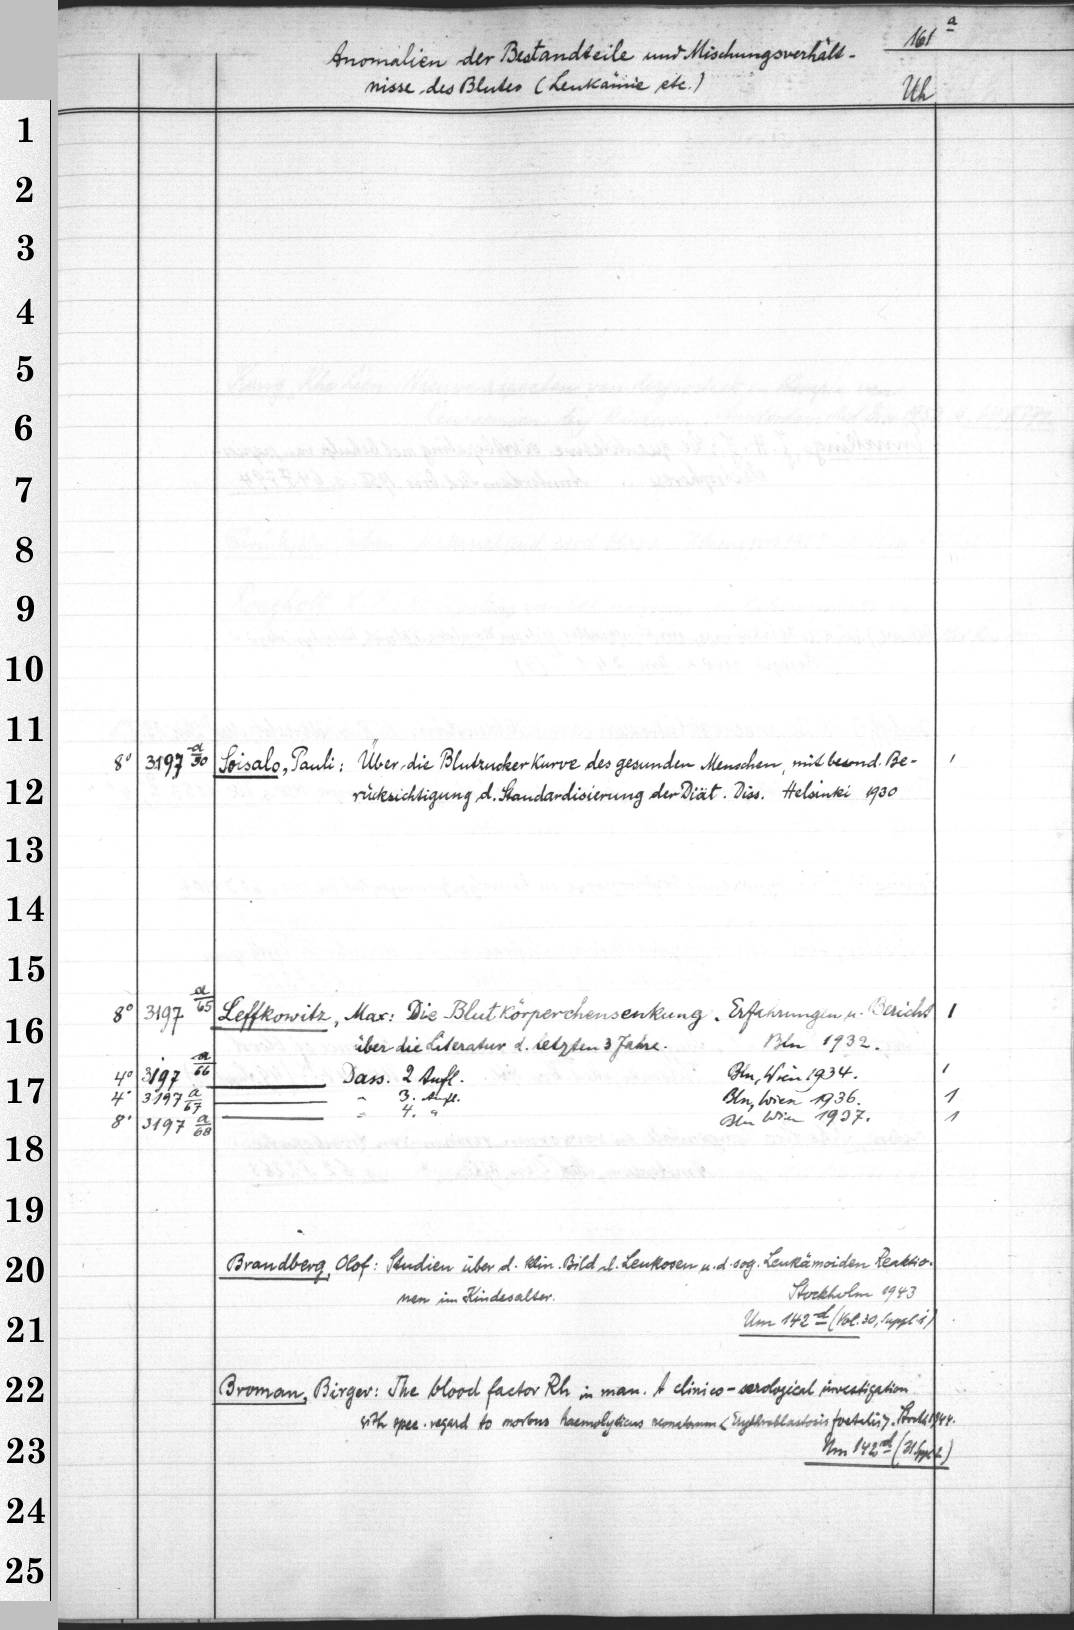 161 a
Anomalien der Bestandteile und Mischungsverhält-
nisse des Blutes (Leukämie etc.)
Uh
1
2
3
4
5
6
7
8
9
10
11
8° 3197 a/30 Soisalo, Pauli: Über die Blutzuckerkurve des gesunden Menschen, mit besond. Be- 1
12
rücksichtigung d. Standardisierung der Diät. Diss. Helsinki 1930
13
14
15
8° 3197 a/65 Leffkowitz, Max: Die Blutkörperchensenkung. Erfahrungen u. Bericht 1
16
über die Literatur d. letzten 3 Jahre. Bln 1932.
4° 3197 a/66 Dass. 2 Aufl. Bln, Wien 1934. 1
17
4° 3197 a/67 " 3. Aufl. Bln, Wien 1936. 1
8° 3197 a/68 " 4. " Bln Wien 1937. 1
18
19
Brandberg, Olof: Studien über d. klin. Bild d. Leukosen u. d. sog. Leukämoiden Reaktio-
20
nen im Kindesalter. Stockholm 1943
Um 142 d (Vol. 30, Suppl i)
21
22
Broman, Birger: The blood factor Rh in man. A clinico-serological investigation
with spec. regard to morbus haemolyticus neonatorum (Erythroblastosis foetalis). Stock 1944.
23
Um 142 d (31 Suppl 2)
24
25